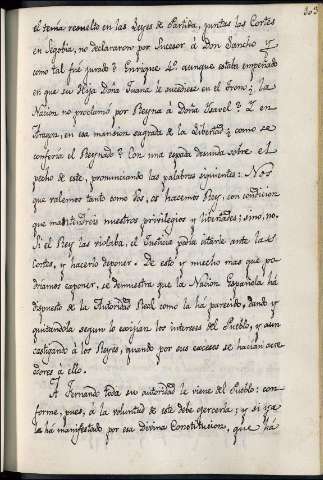 303
el tenia resuelto en las Leyes de Partida, juntas las Cortes
en Segobia, no declararon por Sucesor á Don Sancho I
como tal fué jurado? Enrique 4.º aunque estaba empeñado
en que su Hija Doña Juana le sucediese en el trono; la
Nacion no proclamó por Reyna á Doña Isavel? Y en
Aragon, en esa mansion sagrada de la Libertad; como se
conferia el Reynado? Con una espada desnuda sobre el
pecho de este, pronunciando las palabras siguientes: Nos
que valemos tanto como Vos, os hacemos Rey, con condicion
que mantendreis nuestros privilegios y libertades; sino, no.
Si el Rey las violaba, el Justicia podia citarle ante las
Cortes, y hacerlo deponer. De esto y mucho mas que po-
driamos exponer, se demuestra que la Nacion Española há
dispuesto de la Autoridad Real como la há parecido, dando y
quitandola segun lo exijian los intereses del Pueblo, y aun
castigando á los Reyes, quando por sus excesos se hacian acre-
edores á ello.
A Fernando toda su autoridad le viene del Pueblo: con-
forme, pues, á la voluntad de este debe ejercerla; y si
la há manifestado por esa Divina Constitucion, que há